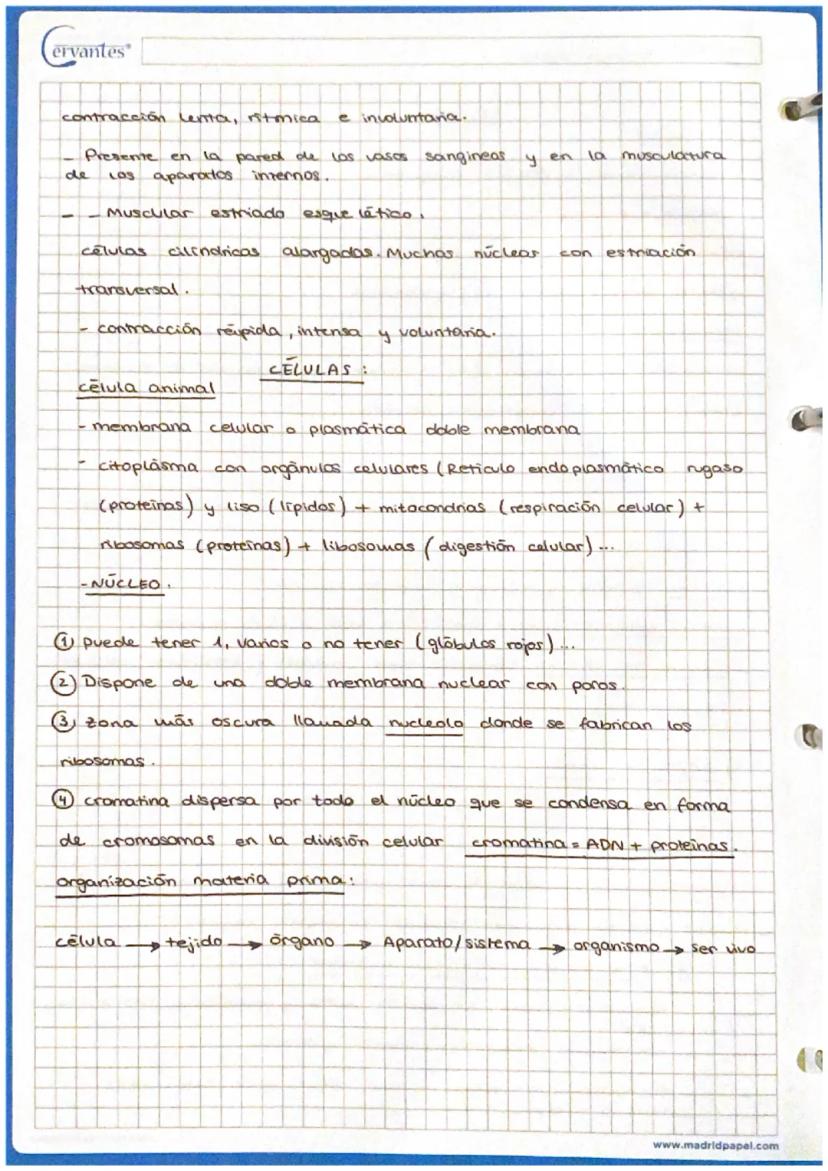 Cervantes®
contracción lenta, rítmica e involuntaria.
- Presente en la pared de los vasos sangineos y en la musculatura
de los aparatos internos.
- - Muscular estriado esquelático.
células cilíndricas alargadas. Muchas núclear con estriación
transversal.
- contracción ráupida, intensa y voluntaria.
CÉLULAS:
célula animal
- membrana celular o plasmática doble membrana
- citoplásma con orgánulos celulares (Retículo endoplasmático rugaso
(proteínas) y liso (lípidos) + mitocondrias (respiración celular) +
ribosomas (proteínas) + libosomas (digestión celular)...
- NÚCLEO.
① puede tener 1, varios o no tener (glóbulos rojos)...
② Dispone de una doble membrana nuclear con poros.
③ zona más oscura llamada nucleolo donde se fabrican los
ribosomas.
④ cromatina dispersa por todo el núcleo que se condensa en forma
de cromosomas en la división celular cromatina = ADN + proteínas.
organización materia prima:
célula → tejido → órgano → Aparato/sistema → organismo → ser vivo
www.madridpapel.com